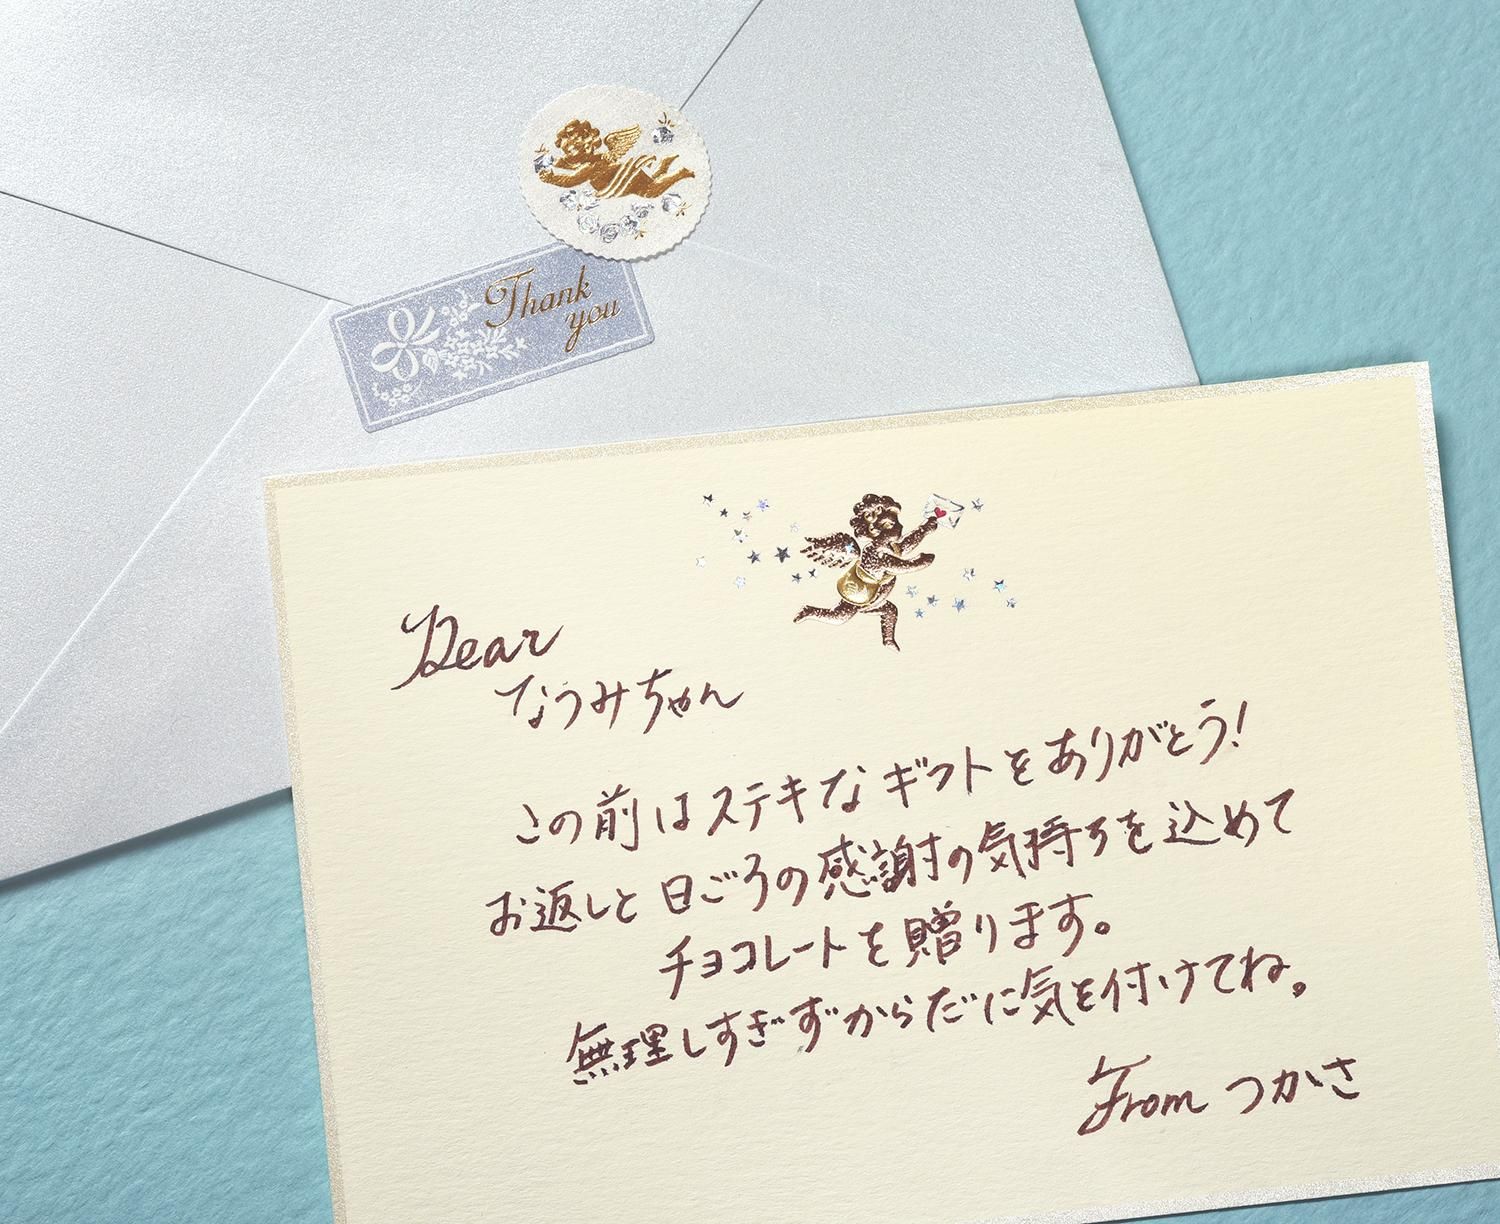 Thank
you
Dear
なつみちゃん
この前はステキなギフトをありがとう!
お返しと日ごろの感謝の気持ちを込めて
チョコレートを贈ります。
無理しすぎずからだに気を付けてね。
From つかさ